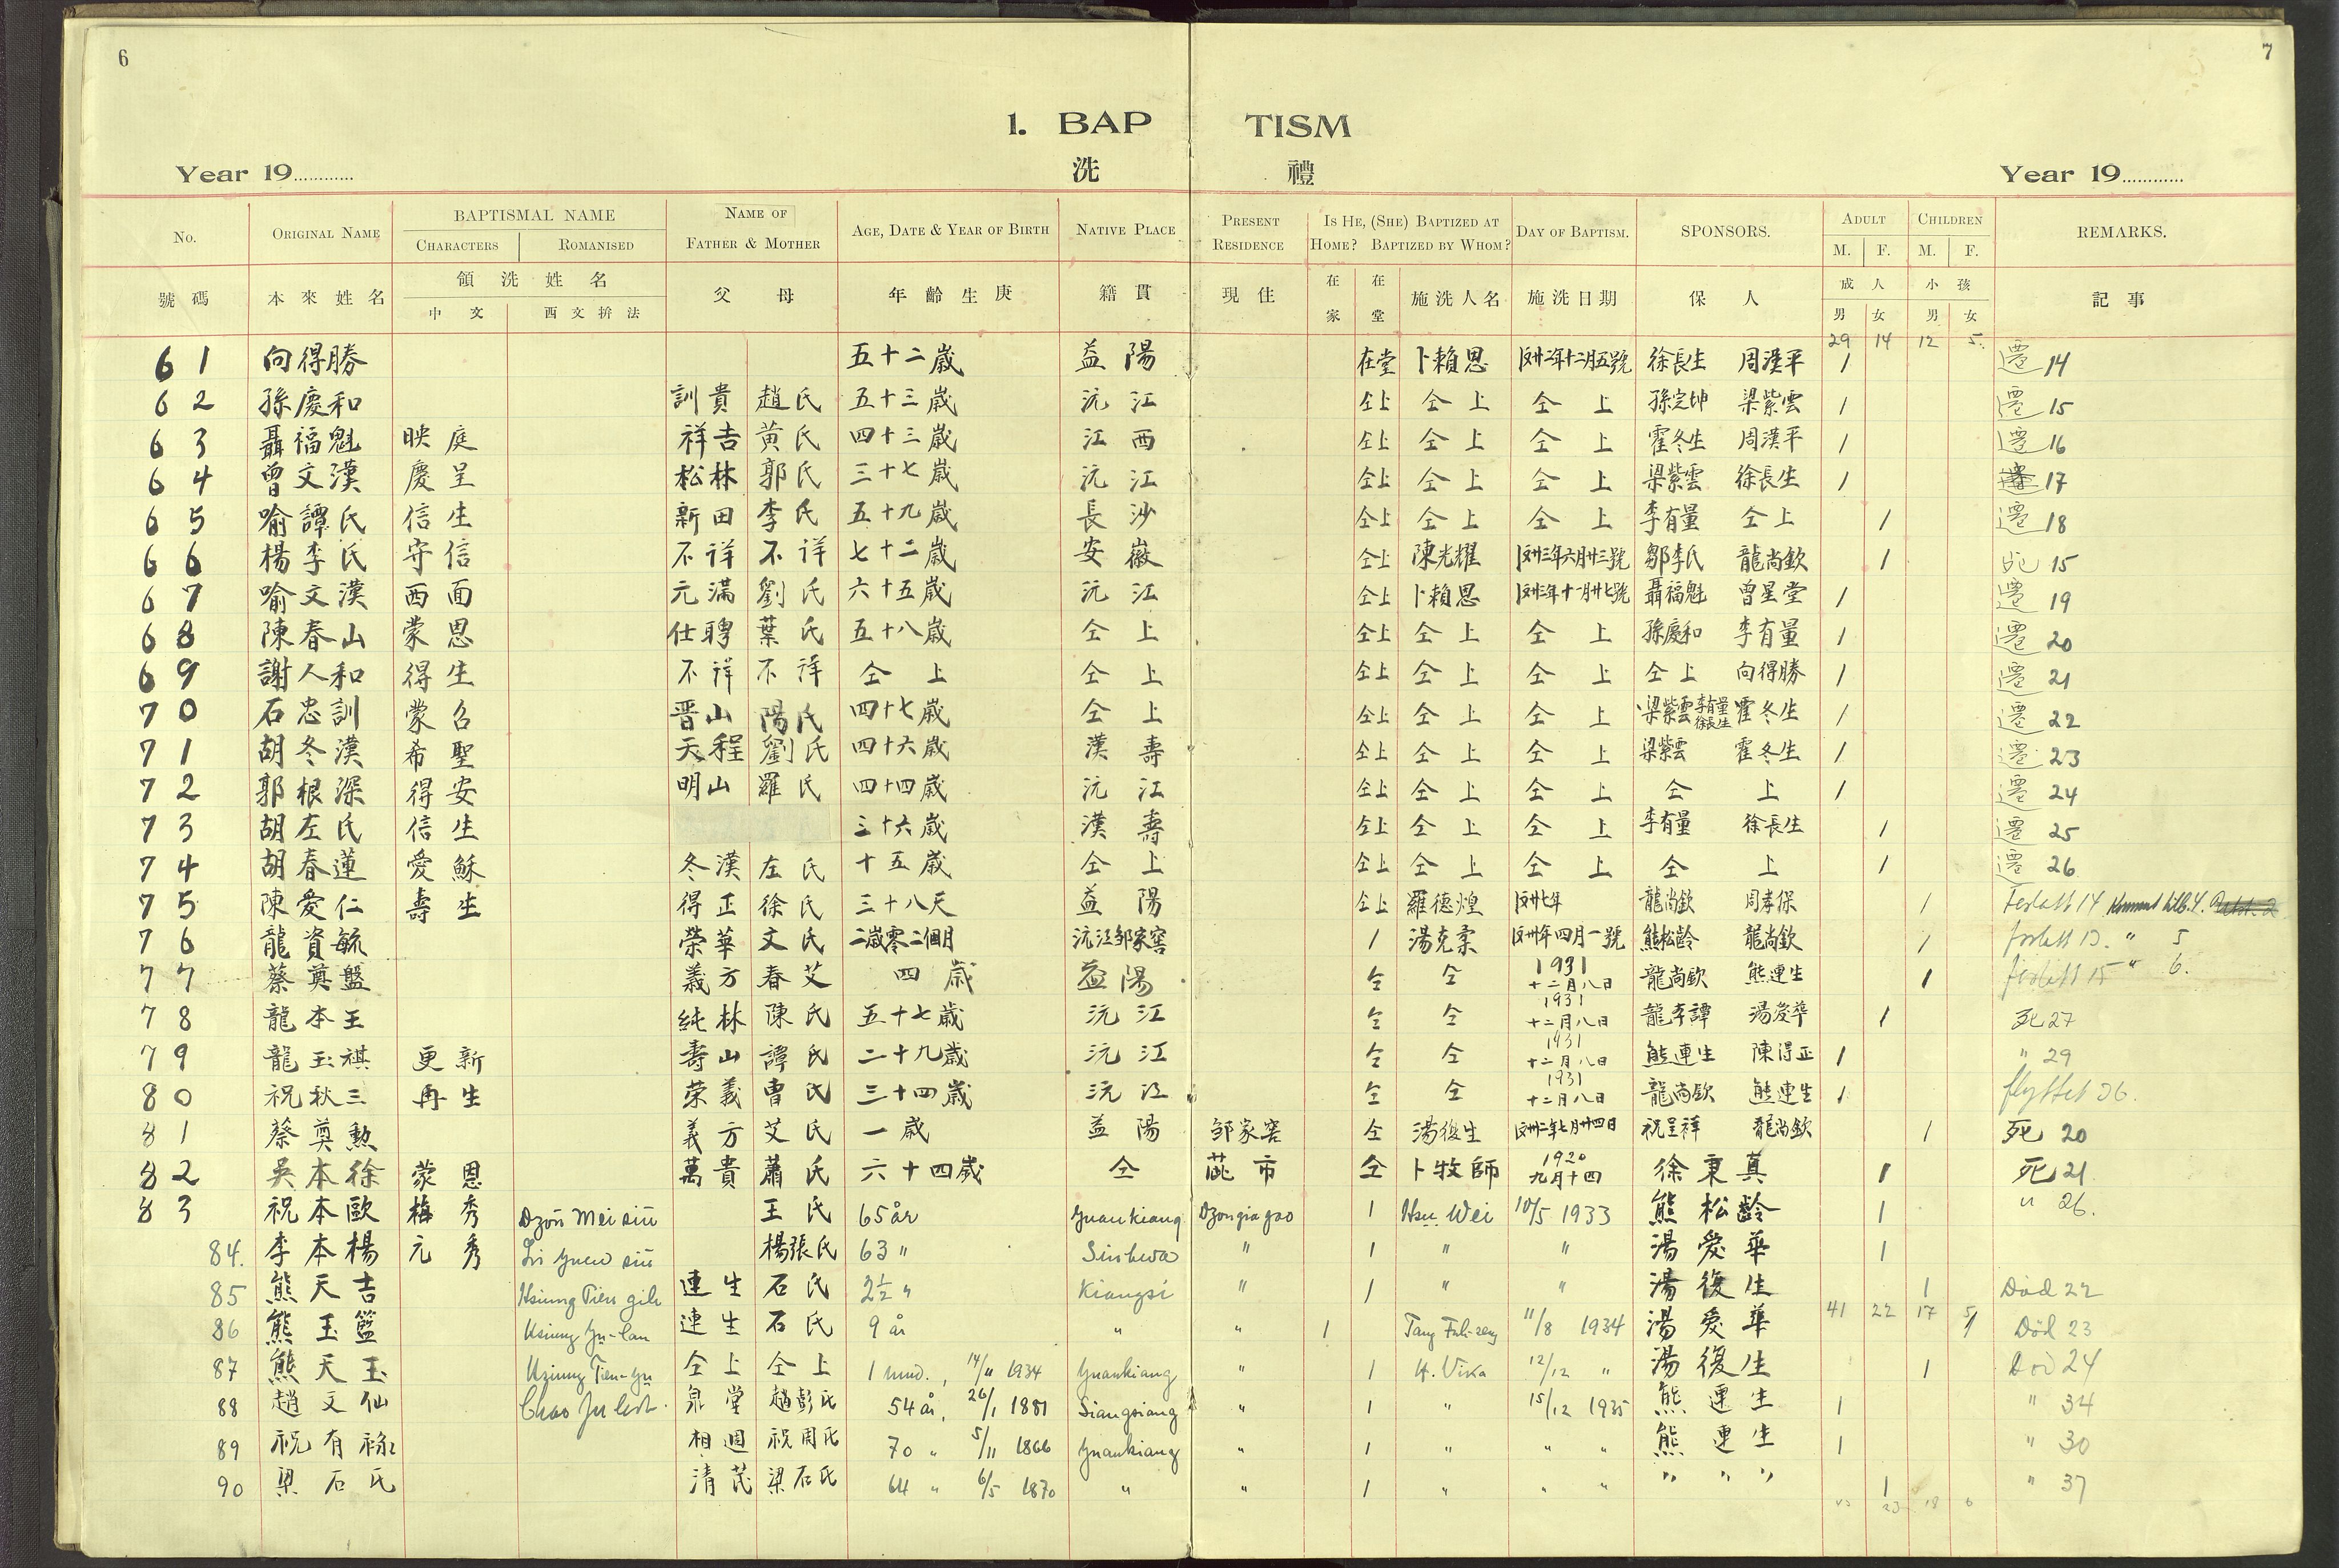 6
7
1. BAP TISM
洗 禮
Year 19............ Year 19............
No. ORIGINAL NAME BAPTISMAL NAME CHARACTERS ROMANISED NAME OF FATHER & MOTHER AGE, DATE & YEAR OF BIRTH NATIVE PLACE PRESENT RESIDENCE IS HE, (SHE) BAPTIZED AT HOME? BAPTIZED BY WHOM? DAY OF BAPTISM. SPONSORS. ADULT M. F. CHILDREN M. F. REMARKS.
號碼 本來姓名 領洗姓名 中文 西文拚法 父母 年齡生庚 籍貫 現住 在家 在堂 施洗人名 施洗日期 保人 成人 男 女 小孩 男 女 記事
29 14 12 5.
61 向得勝 五十二歳 益陽 在堂 卜賴恩 徐長生 周漢平 1 遷 14
62 孫慶和 訓貴 趙氏 五十三歳 沅江 仝上 仝上 仝上 孫定坤 梁紫雲 1 遷 15
63 聶福魁 映庭 祥吉 黃氏 四十三歳 江西 仝上 仝上 仝上 霍冬生 周漢平 1 遷 16
64 曾文漢 慶呈 松林 郭氏 三十七歳 沅江 仝上 仝上 仝上 梁紫雲 徐長生 1 17
65 喻譚氏 信生 新田 李氏 五十九歳 長沙 仝上 仝上 仝上 李有量 仝上 1 遷 18
66 楊李氏 守信 不祥 不祥 七十二歳 安徽 仝上 陳光耀 鄒李氏 龍尚欽 1 死 15
67 喻文漢 西面 元滿 劉氏 六十五歳 沅江 仝上 卜賴恩 聶福魁 曾星堂 1 遷 19
68 陳春山 蒙恩 仕聘 葉氏 五十八歳 仝上 仝上 仝上 仝上 孫慶和 李有量 1 遷 20
69 謝人和 得生 不祥 不祥 仝上 仝上 仝上 仝上 仝上 仝上 向得勝 1 遷 21
70 石忠訓 蒙召 晋山 陽氏 四十七歳 仝上 仝上 仝上 仝上 梁紫雲 李有量 徐長生 霍冬生 1 遷 22
71 胡冬漢 希聖 天程 劉氏 四十六歳 漢壽 仝上 仝上 仝上 梁紫雲 霍冬生 1 遷 23
72 郭根深 得安 明山 羅氏 四十四歳 沅江 仝上 仝上 仝上 仝上 1 遷 24
73 胡左氏 信生 三十六歳 漢壽 仝上 仝上 仝上 李有量 徐長生 1 遷 25
74 胡春蓮 愛穌 冬漢 左氏 十五歳 仝上 仝上 仝上 仝上 仝上 1 遷 26
75 陳愛仁 壽生 得正 徐氏 三十八天 益陽 仝上 羅德煌 龍尚欽 周孝保 1 14
76 龍資毓 榮華 文氏 二歳零二個月 沅江鄒家窖 1 湯克柔 熊松齡 龍尚欽 1 13. " 5
77 蔡奠盤 義方 春艾 四歳 益陽 仝 仝 1931 十二月八日 龍尚欽 熊連生 1 15 " 6.
78 龍本王 純林 陳氏 五十七歳 沅江 仝 仝 1931 十二月八日 龍李譚 湯愛華 1 死 27
79 龍玉祺 更新 壽山 譚氏 二十九歳 沅江 仝 仝 1931 十二月八日 熊連生 陳得正 1 " 29
80 祝秋三 再生 荣義 曹氏 三十四歳 沅江 仝 仝 1931 十二月八日 龍尚欽 熊連生 1 flyttet 26.
81 蔡奠勲 義方 艾氏 一歳 益陽 邹家窖 仝 湯復生 祝呈祥 龍尚欽 1 死 20
82 吳本徐 蒙恩 萬貴 蕭氏 六十四歳 仝 茈市 仝 卜牧師 1920 九月十四 徐秉真 1 死 21
83 祝本歐 梅秀 Dzou Mei siü 王氏 65 år Yuankiang Dzougiagao 1 Hsu Wei 10/5 1933 熊松齡 1 " 26.
84. 李本楊 元秀 Li Yuen siü 楊張氏 63 " Sinhwa " 1 " " 湯愛華 1
85 熊天吉 Hsiung Tien gih 連生 石氏 2½ " Kiangsi " 1 " " 湯復生 1 Död 22
86 熊玉籃 Hsiung Yu-lan 連生 石氏 9 år " " 1 Tang Fuh-seng 11/8 1934 湯愛華 41 22 17 5 1 Död 23
87 熊天玉 Hsiung Tien-yu 仝上 仝上 1 mnd., 14/11 1934 Yuankiang " 1 H. Vika 12/12 " 湯復生 1 Död 24
88 趙文仙 泉堂 趙彭氏 54 år, 26/1 1881 Siangsiang " 1 " 15/12 1935 熊連生 1 " 34
89 祝有祿 相週 祝周氏 70 " 5/11 1866 Yuankiang " 1 " " " 熊連生 1 " 30
90 梁石氏 清茂 梁石氏 64 " 6/5 1870 " " 1 " " " " " " 1 " 37
23 18 6